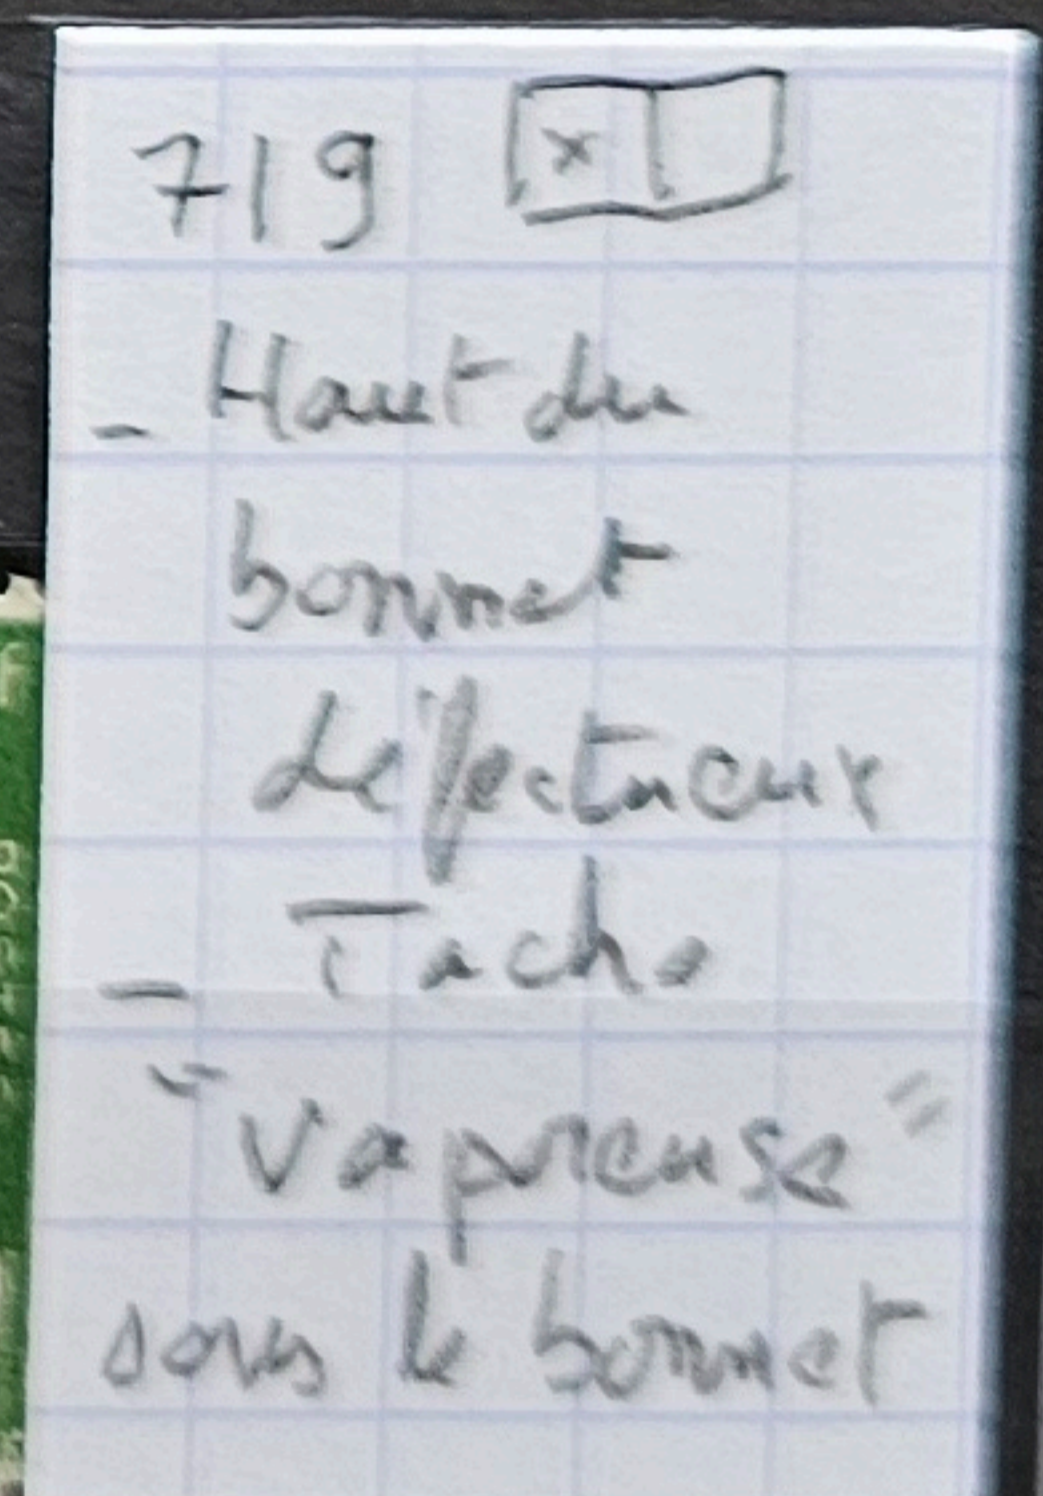 719 x
- Haut du
bonnet
défectueux
- Tache
"Vaporeuse"
sous le bonnet